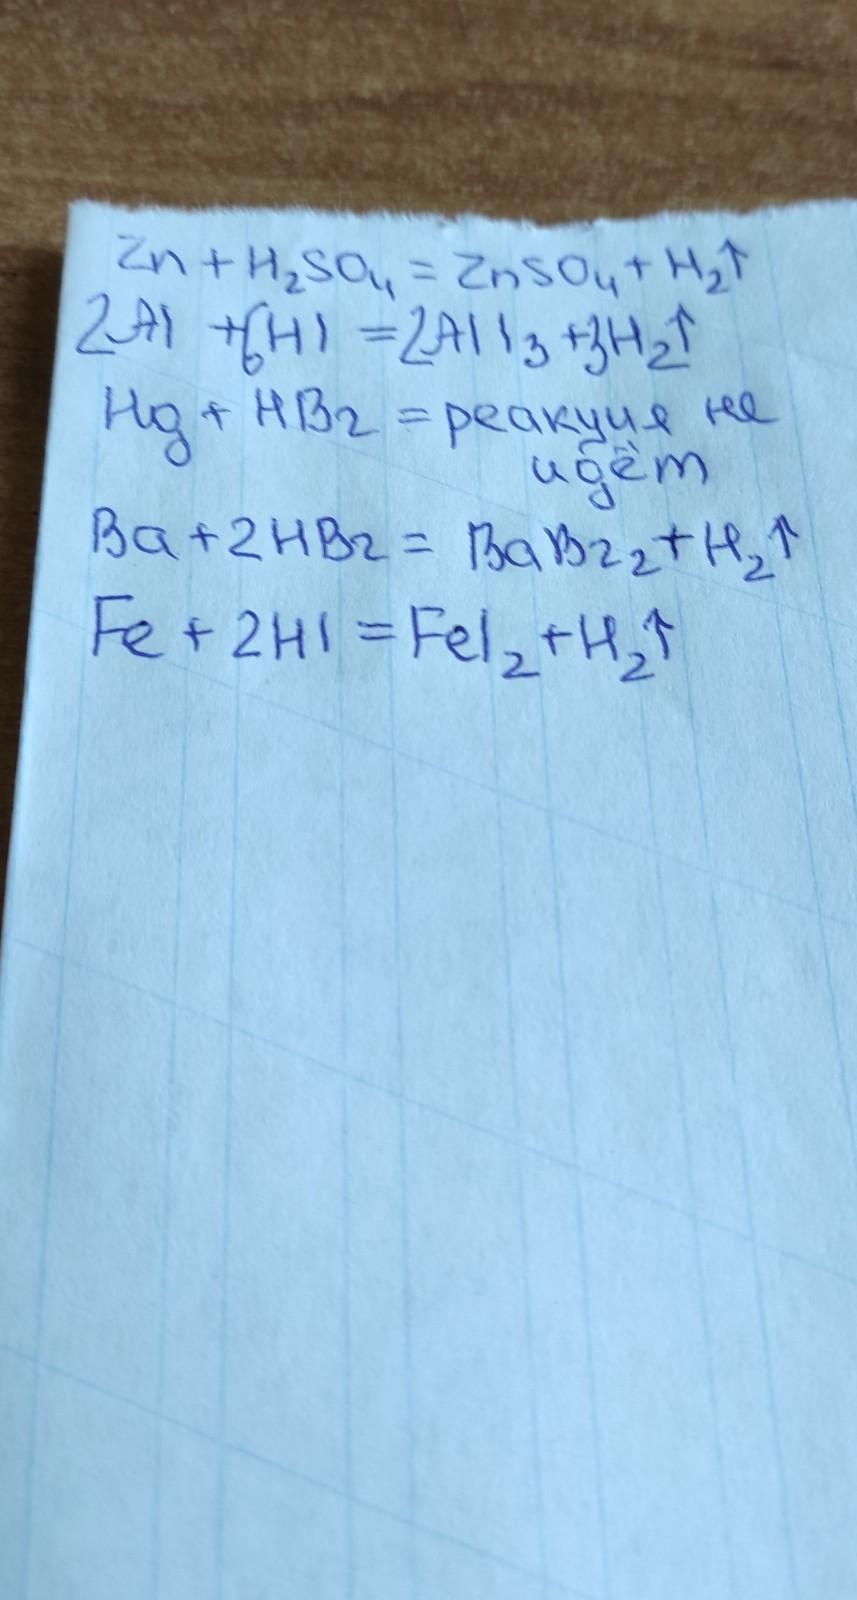 Zn + H₂SO₄ = ZnSO₄ + H₂↑
2Al + 6HI = 2AlI₃ + 3H₂↑
Hg + HBr = реакция не
идёт
Ba + 2HBr = BaBr₂ + H₂↑
Fe + 2HI = FeI₂ + H₂↑